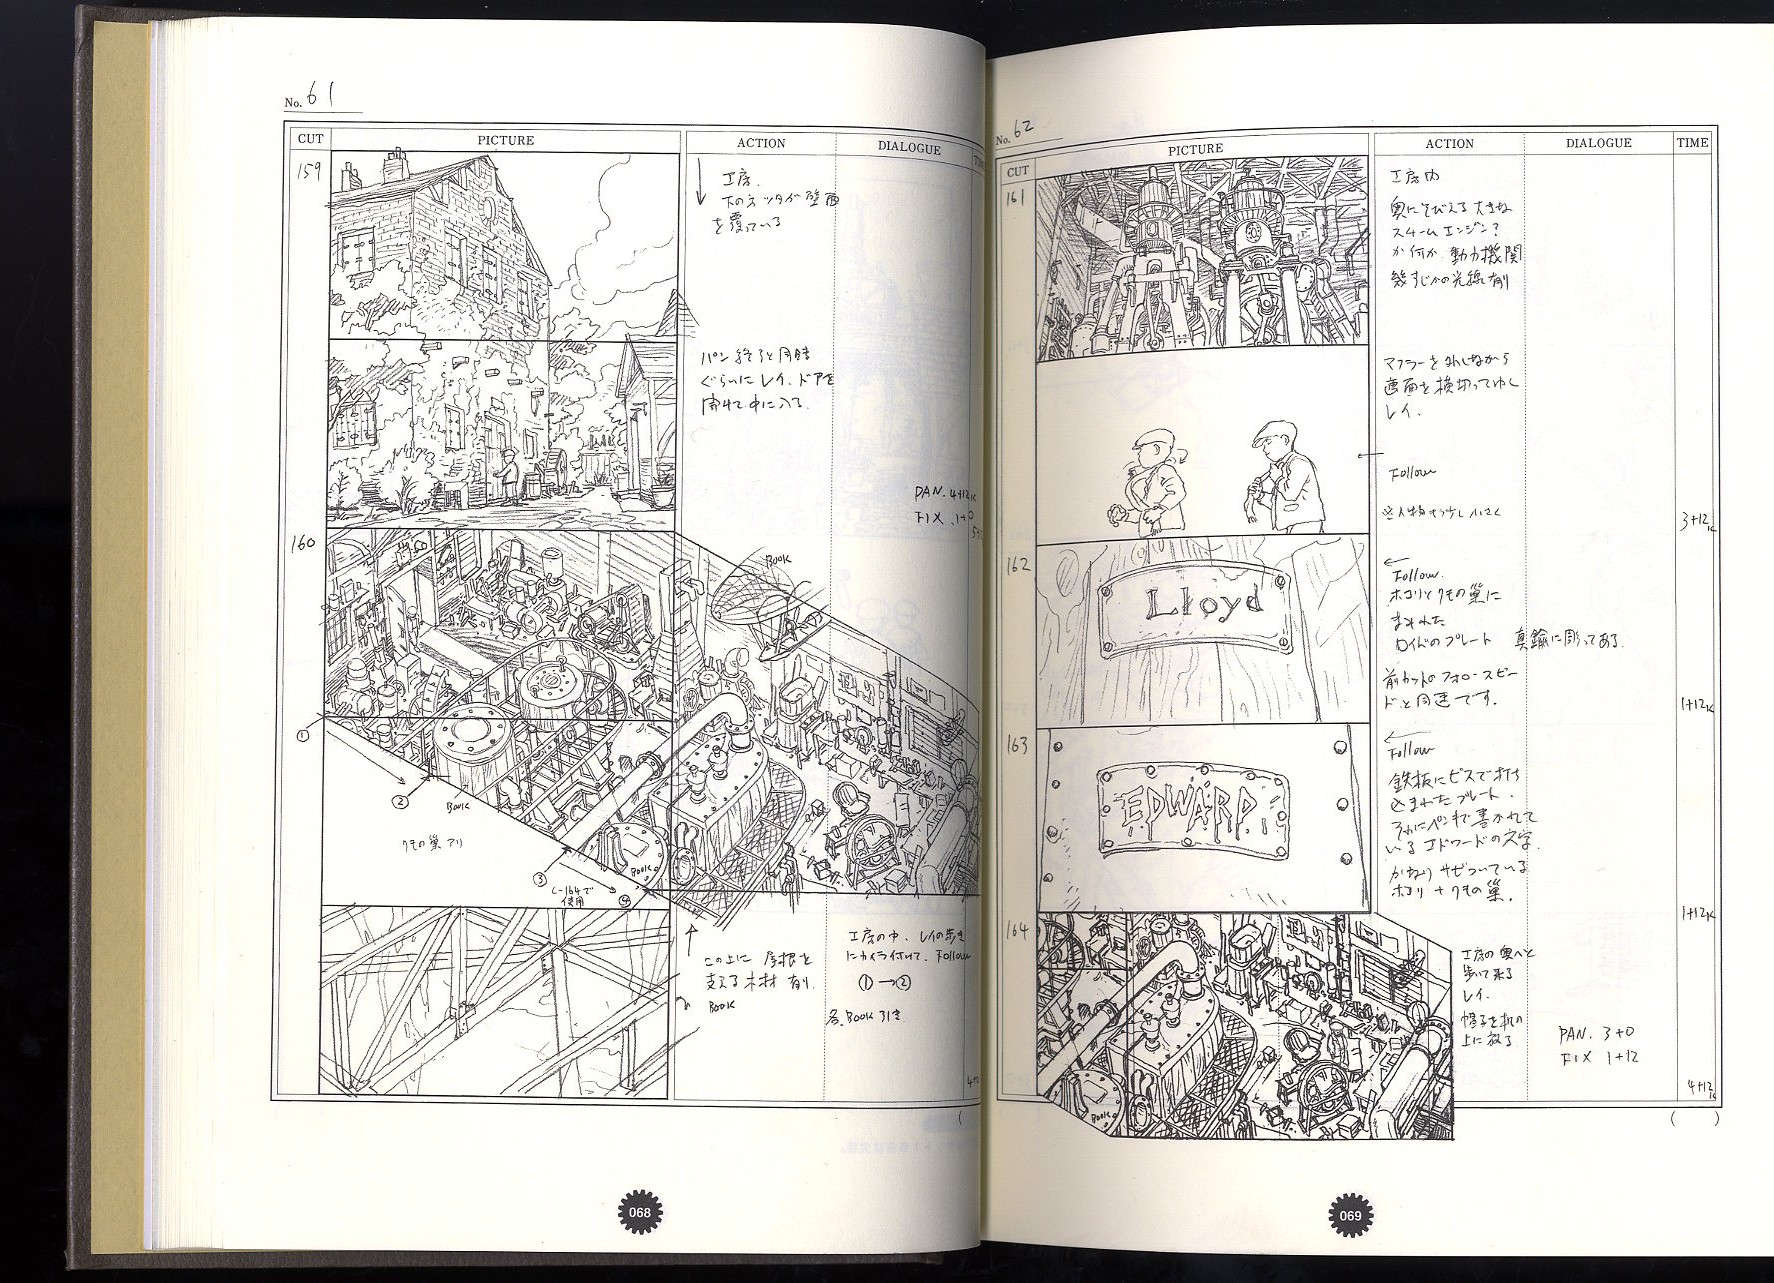 No. 61
CUT PICTURE ACTION DIALOGUE
159
工房.
下の方ツタが壁面
を覆っている
パン終ると同時
ぐらいにレイ、ドアを
開けて中に入る.
PAN. 4+12K
FIX. 1+0
160
BOOK
①
②
BOOK
クモの巣アリ
③
C-164で
使用
BOOK
④
この上に屋根を
支える木材有り.
BOOK
工房の中. レイの歩き
にカメラ付けて. Follow
①→②
各BOOK引き
068
No. 62
CUT PICTURE ACTION DIALOGUE TIME
161
工房内
奥にそびえる大きな
スチームエンジン?
か何か動力機関
幾すじかの光線有り
マフラーを外しながら
画面を横切ってゆく
レイ.
Follow
※人物もう少し小さく
3+12K
162
Lloyd
Follow.
ホコリとクモの巣に
まみれた
ロイドのプレート 真鍮に彫ってある.
前カットのフォロースピー
ドと同速です.
1+12K
163
EDWARD
Follow
鉄板にビスで打ち
込まれたプレート.
それにペンキで書かれて
いるエドワードの文字.
かなりサビついている
ホコリ+クモの巣.
1+12K
164
BOOK
工房の奥へと
歩いて来る
レイ.
帽子を机の
上に放る
PAN. 3+0
FIX 1+12
4+12K
( )
069